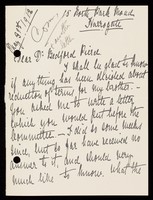 15 North Park Road
Harrogate
Dear Dr Bedford Pierce
I shall be glad to know
if anything has been decided about
reduction of terms for my brother —
you asked me to write a letter
which you would put before the
Committee — I did so some weeks
since, but so far have received no
answer to it and would very
much like to know. What the